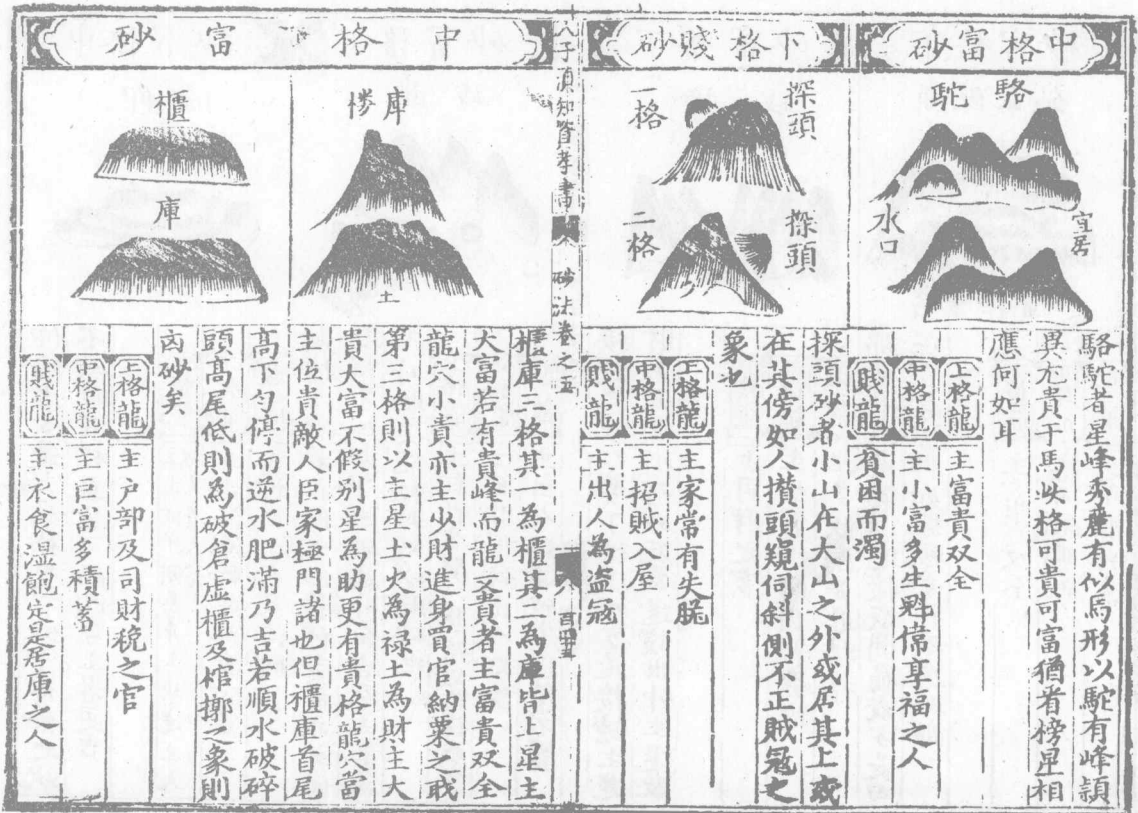 中格富砂
駱駝
宜居
水口
駱駝者星峰秀麗有似馬形以駝有峰頴
異尤貴于馬此格可貴可富猶看榜星相
應何如耳
上格龍
主富貴双全
中格龍
主小富多生魁偉享福之人
賤龍
貧困而濁
下格賤砂
探頭
一格
探頭
二格
探頭砂者小山在大山之外或居其上或
在其傍如人攢頭窺伺斜側不正賊冦之
象也
上格龍
主家常有失脱
中格龍
主招賊入屋
賤龍
主出人為盗冦
人子須知資孝書
砂法卷之五
中格富砂
庫櫕
土
櫃
庫
櫃庫三格其一為櫃其二為庫皆土星主
大富若有貴峰而龍又貴者主富貴双全
龍穴小貴亦主少財進身買官納粟之職
第三格則以主星土火為禄土為財主大
貴大富不假别星為助更有貴格龍穴當
主位貴敵人臣家極門諸也但櫃庫首尾
高下匀停而逆水肥滿乃吉若順水破碎
頭高尾低則為破倉虚櫃及棺槨之象則
凶砂矣
上格龍
主户部及司財税之官
中格龍
主巨富多積蓄
賤龍
主衣食温飽定是居庫之人